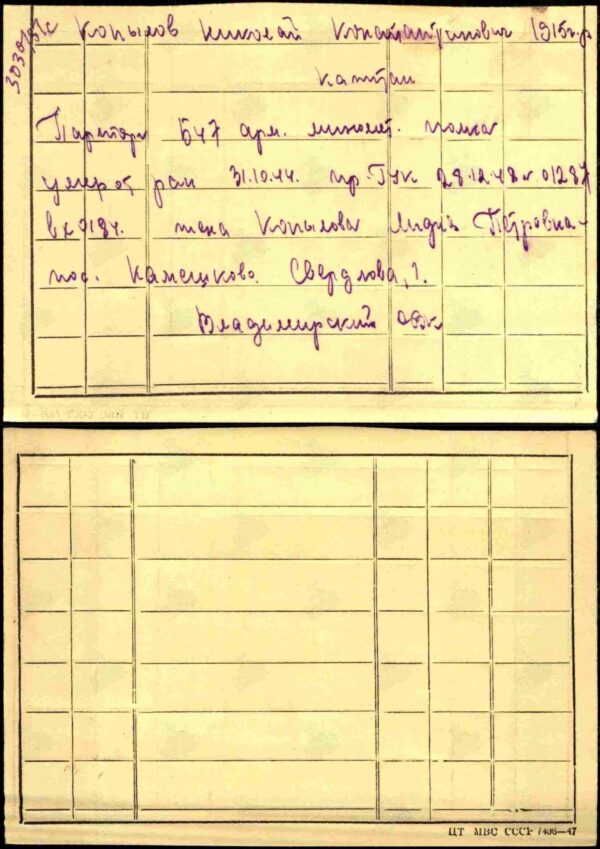 30301
Копылов Николай Константинович 1915 г.р
Капитан
Парторг 547 арм. миномет. полка
умер от ран 31.10.44. пр. ГУК 28.12.48 г. 01287
вх 0184. жена Копылова Лидия Петровна -
пос. Камешково Свердлова, 1.
Владимирский обл
ЦТ МВС СССР 7406—47